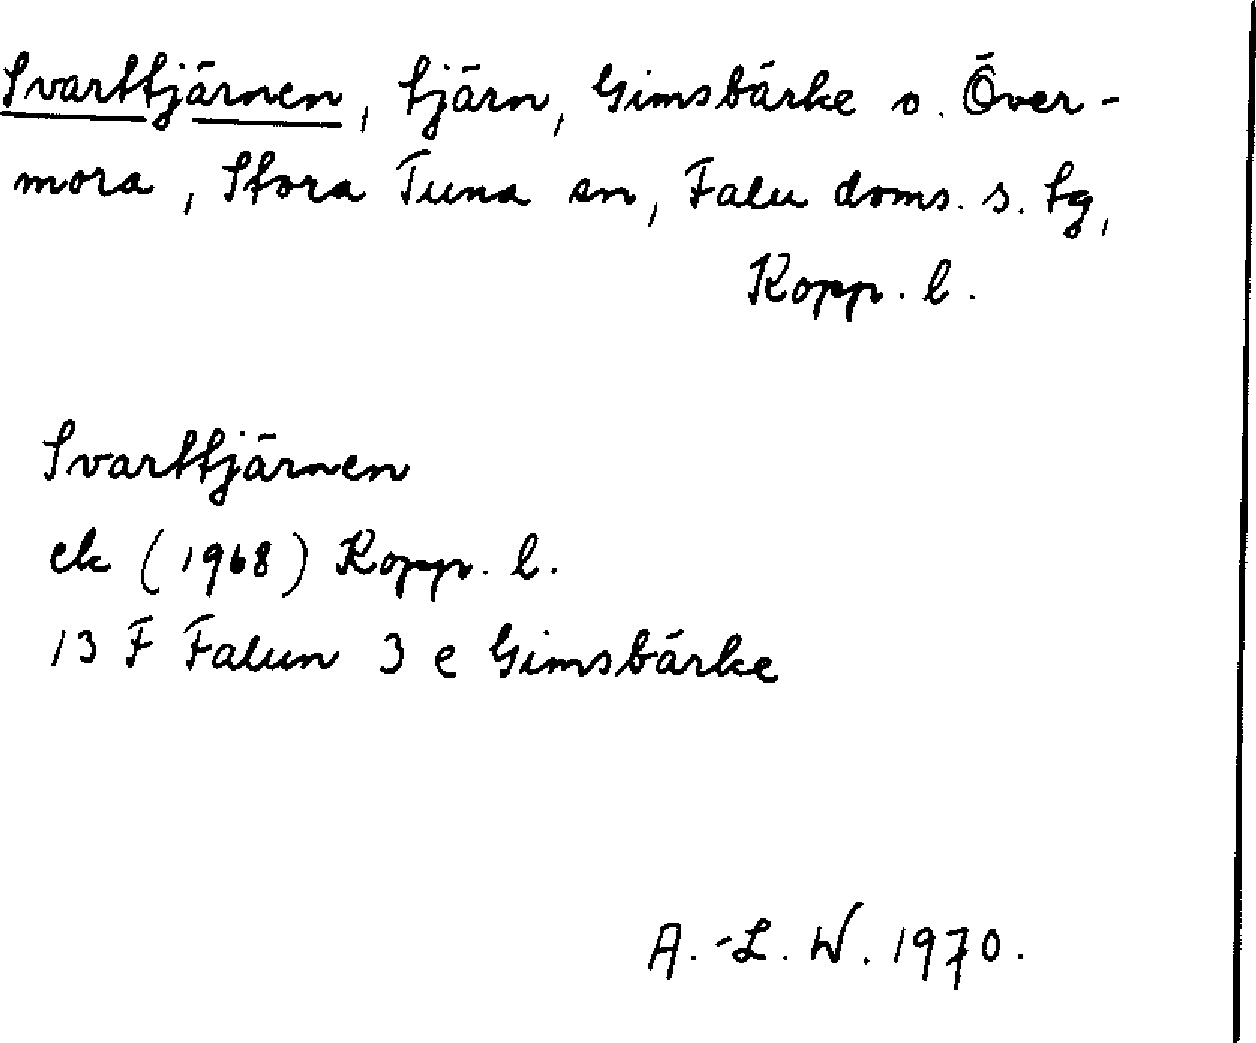 Svarttjärnen, tjärn, Gimsbärke o. Över-
mora, Stora Tuna sn, Falu doms. s. tg,
Kopp. l.
Svarttjärnen
ek (1968) Kopp. l.
13 F Falun 3 e Gimsbärke
A.-L. W. 1970.